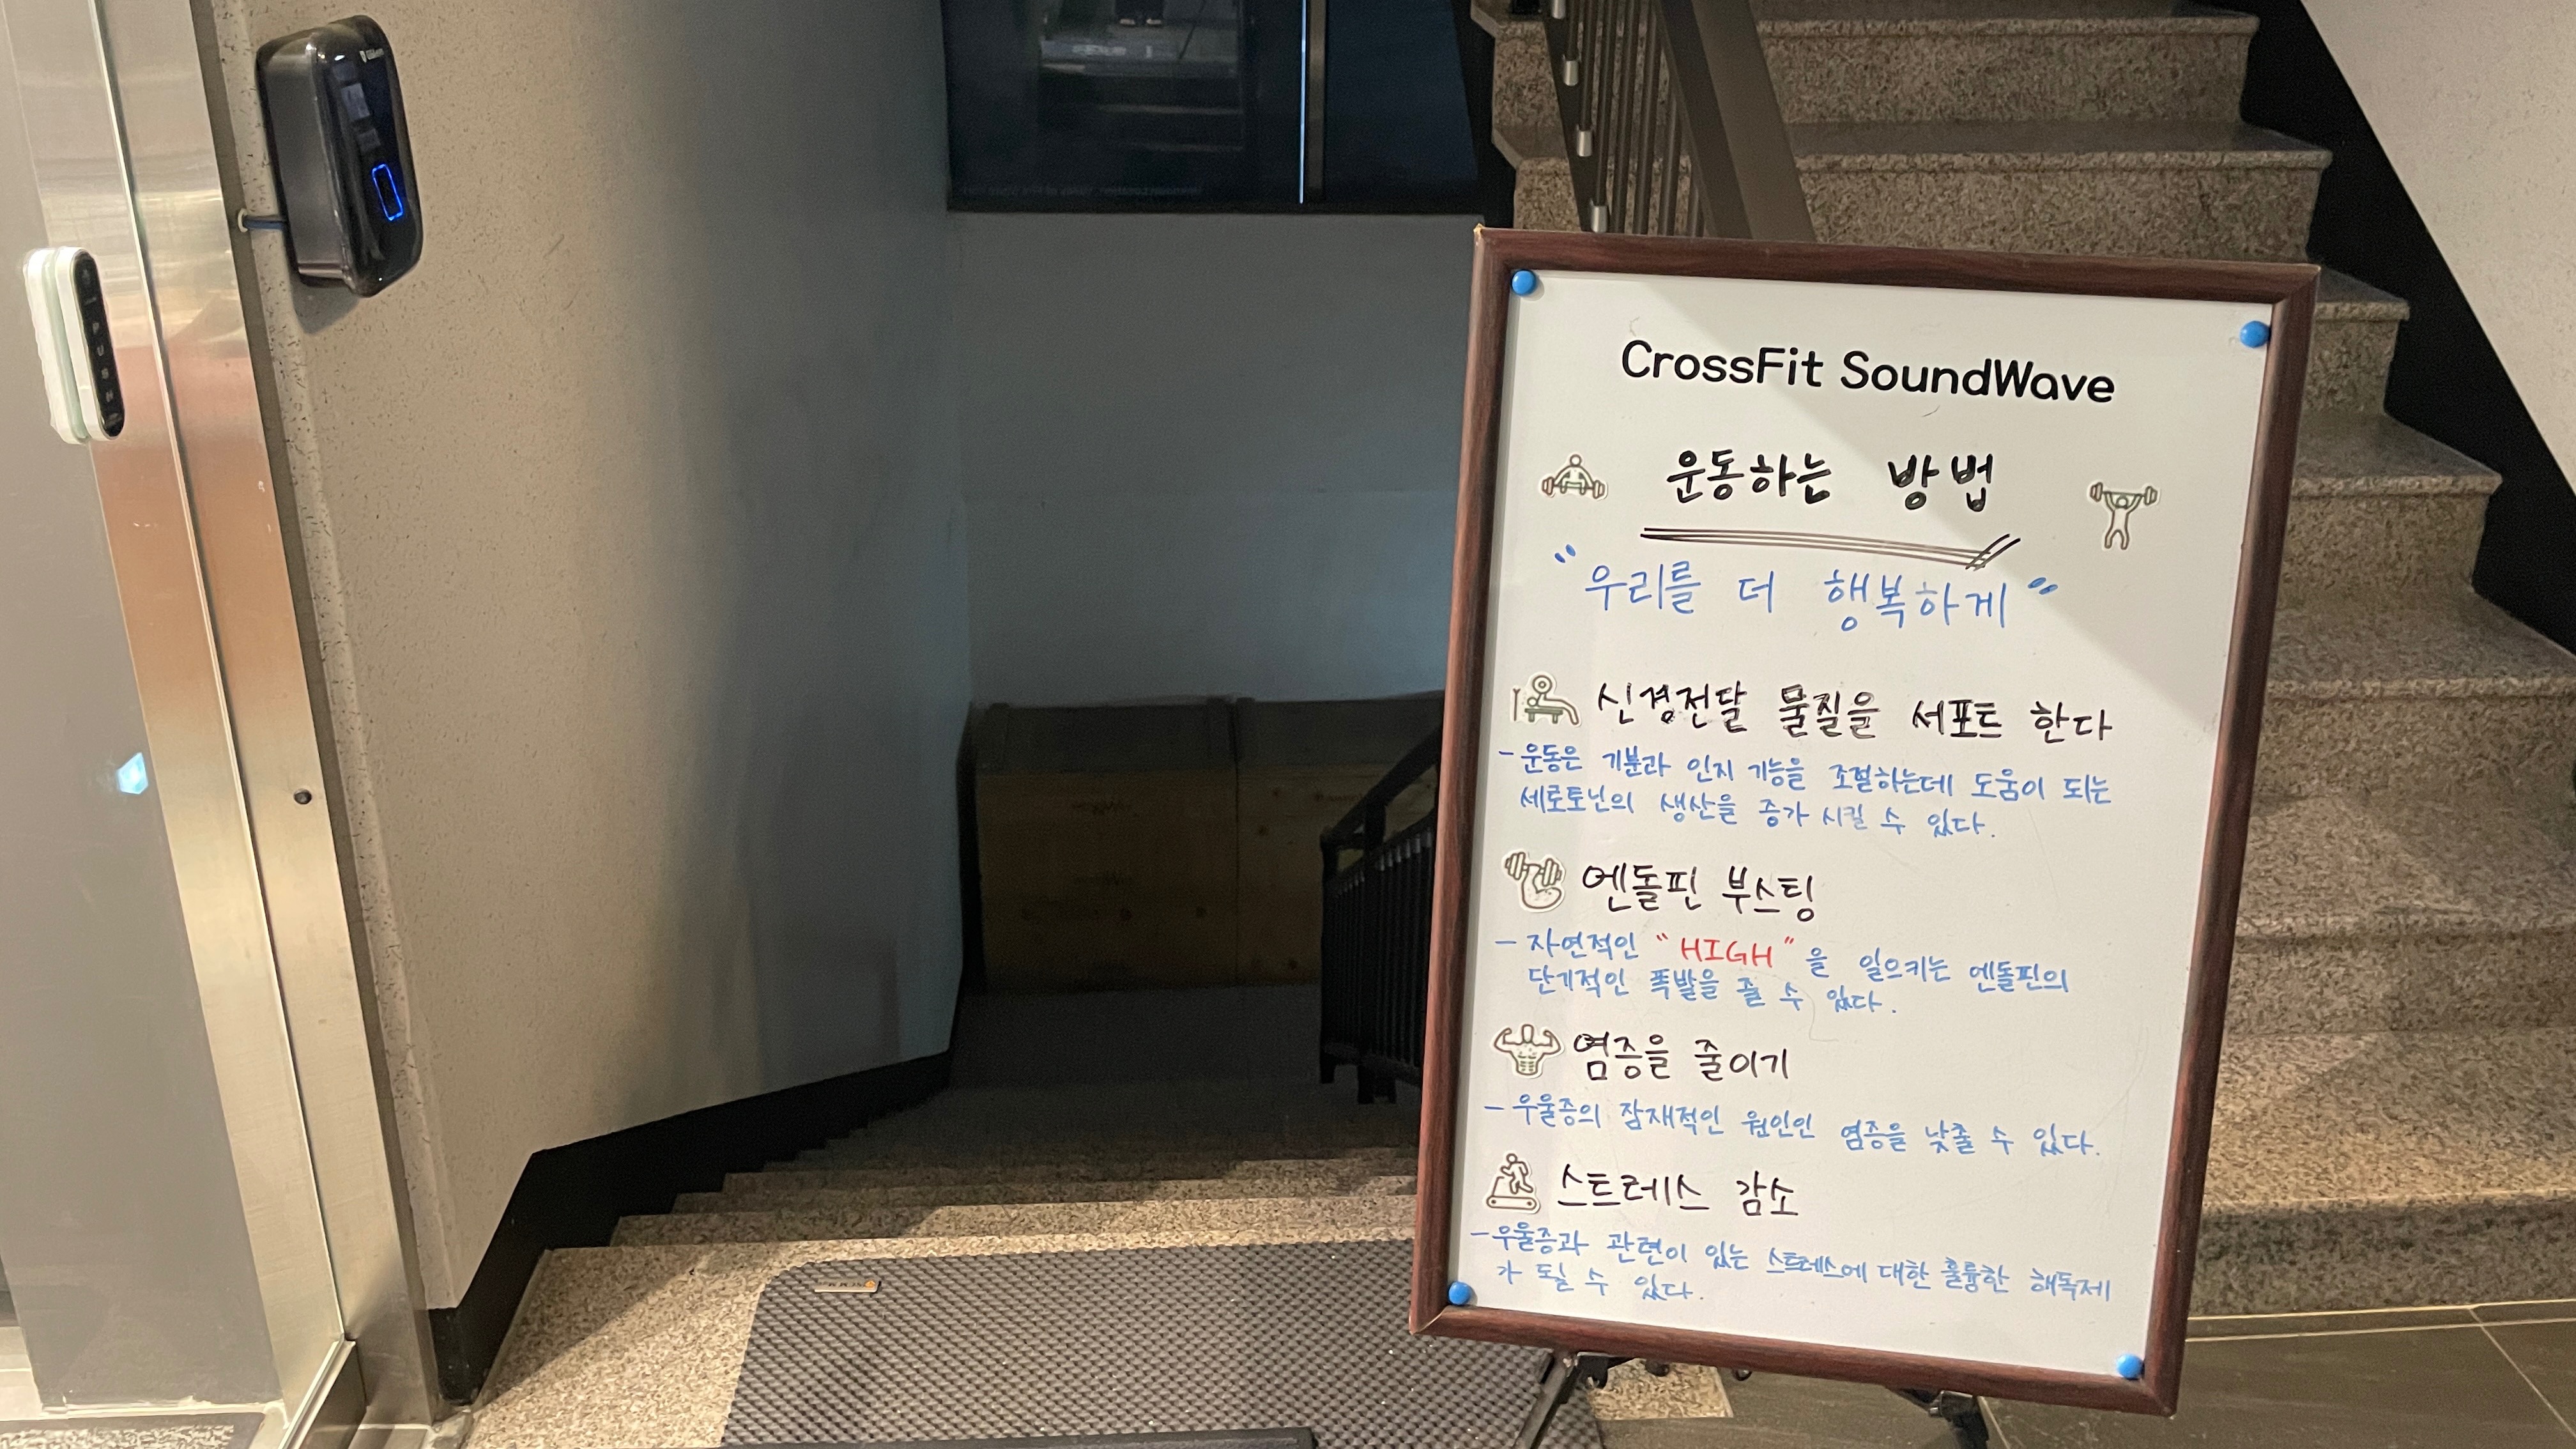 PUSH
CrossFit SoundWave
운동하는 방법
"우리를 더 행복하게"
신경전달 물질을 서포트 한다
- 운동은 기분과 인지 기능을 조절하는데 도움이 되는
세로토닌의 생산을 증가 시킬 수 있다.
엔돌핀 부스팅
- 자연적인 "HIGH"을 일으키는 엔돌핀의
단기적인 폭발을 줄 수 있다.
염증을 줄이기
- 우울증의 잠재적인 원인인 염증을 낮출 수 있다.
스트레스 감소
- 우울증과 관련이 있는 스트레스에 대한 훌륭한 해독제
가 될 수 있다.